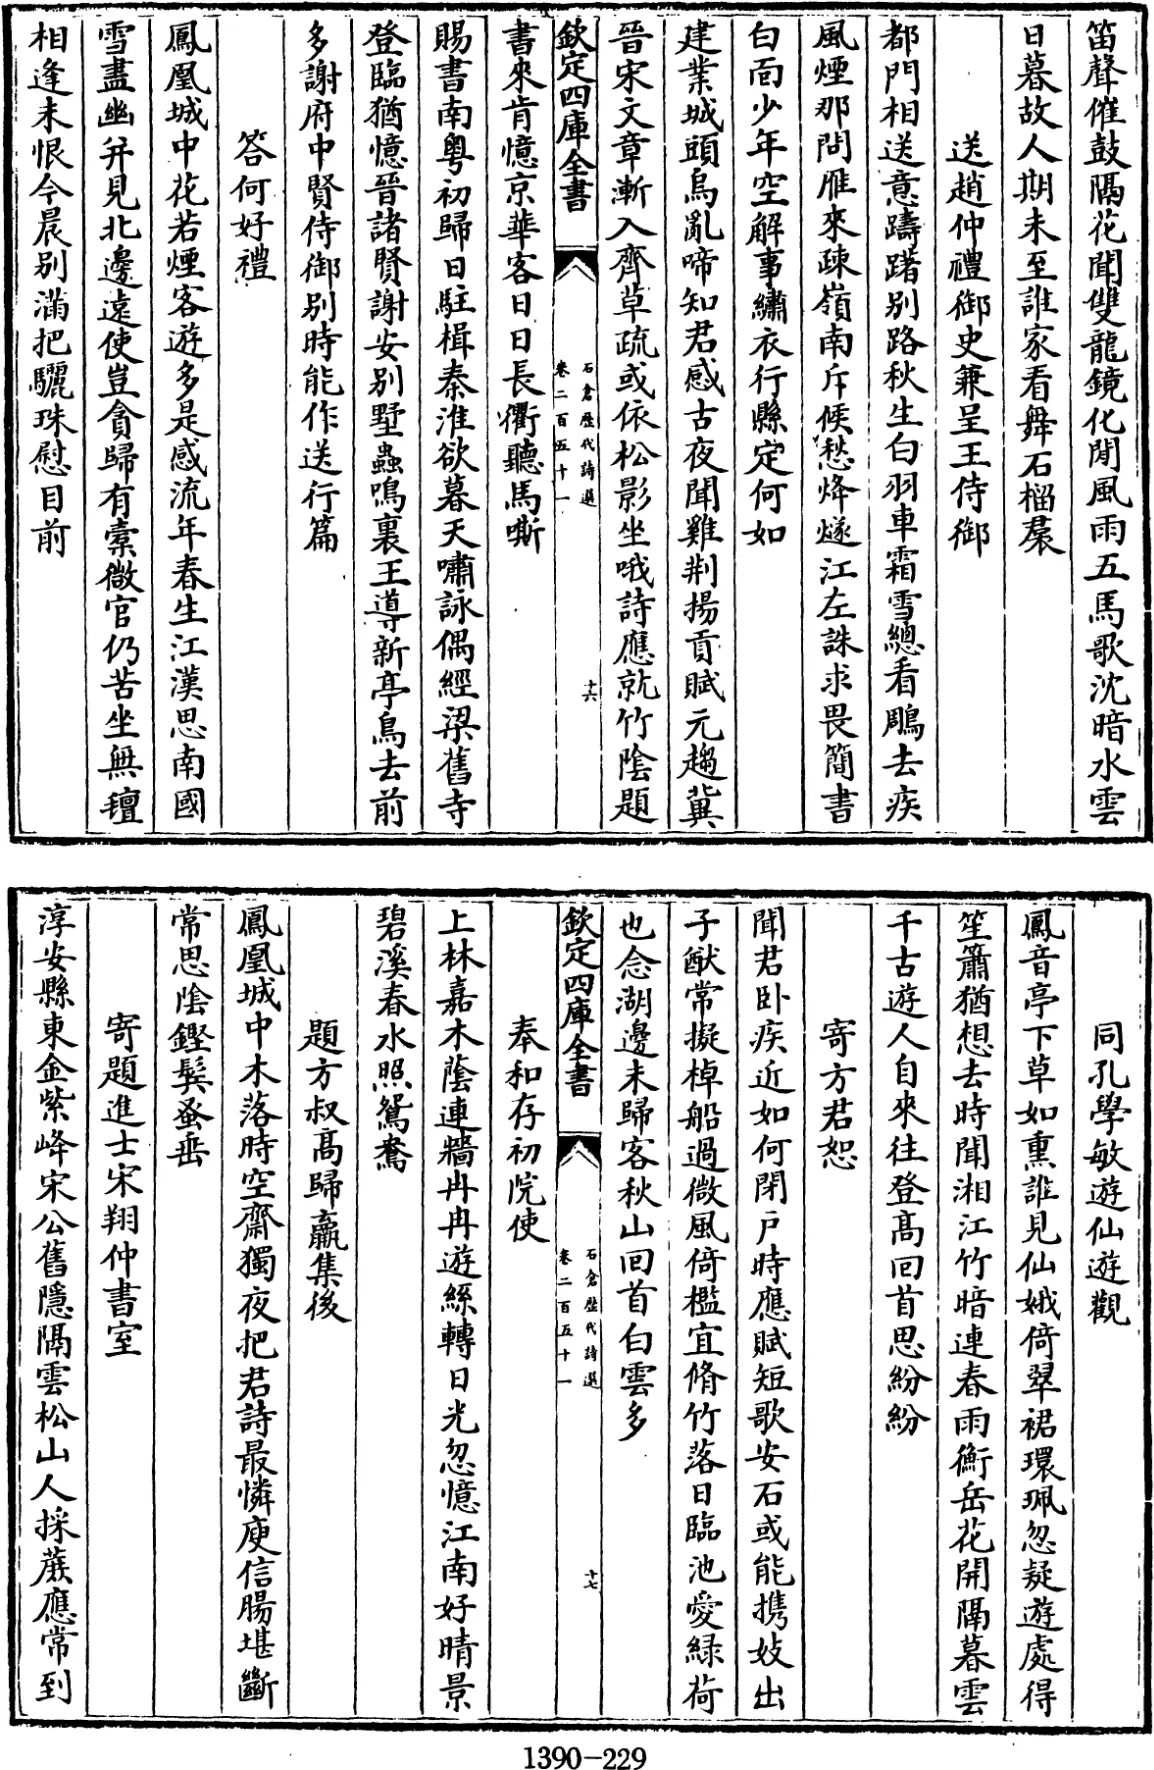 笛聲催鼓隔花聞雙龍鏡化閒風雨五馬歌沈暗水雲
日暮故人期未至誰家看舞石榴裠
送趙仲禮御史兼呈王侍御
都門相送意躊躇別路秋生白羽車霜雪總看鵰去疾
風煙那問雁來疎嶺南斥候愁烽燧江左誅求畏簡書
白面少年空解事繡衣行縣定何如
建業城頭烏亂啼知君感古夜聞雞荆揚貢賦元趨冀
晉宋文章漸入齊草疏或依松影坐哦詩應就竹陰題
書來肯憶京華客日日長衢聽馬嘶
欽定四庫全書
石倉歷代詩選
卷二百五十一
十六
賜書南粤初歸日駐楫秦淮欲暮天嘯詠偶經梁舊寺
登臨猶憶晉諸賢謝安別墅蟲鳴裏王導新亭鳥去前
多謝府中賢侍御別時能作送行篇
答何好禮
鳳凰城中花若煙客遊多是感流年春生江漢思南國
雪盡幽并見北邊遠使豈貪歸有橐微官仍苦坐無氊
相逢未恨今晨別滿把驪珠慰目前
同孔學敏遊仙遊觀
鳳音亭下草如熏誰見仙娥倚翠裙環珮忽疑遊處得
笙簫猶想去時聞湘江竹暗連春雨衡岳花開隔暮雲
千古遊人自來往登高回首思紛紛
寄方君恕
聞君卧疾近如何閉戸時應賦短歌安石或能携妓出
子猷常擬棹船過微風倚檻宜脩竹落日臨池愛緑荷
也念湖邊未歸客秋山回首白雲多
欽定四庫全書
石倉歷代詩選
卷二百五十一
十七
奉和存初院使
上林嘉木蔭連牆冉冉遊絲轉日光忽憶江南好晴景
碧溪春水照鴛鴦
題方叔高歸羸集後
鳳凰城中木落時空齋獨夜把君詩最憐庾信腸堪斷
常思陰鏗鬓蚤垂
寄題進士宋翔仲書室
淳安縣東金紫峰宋公舊隱隔雲松山人採蕨應常到
1390-229